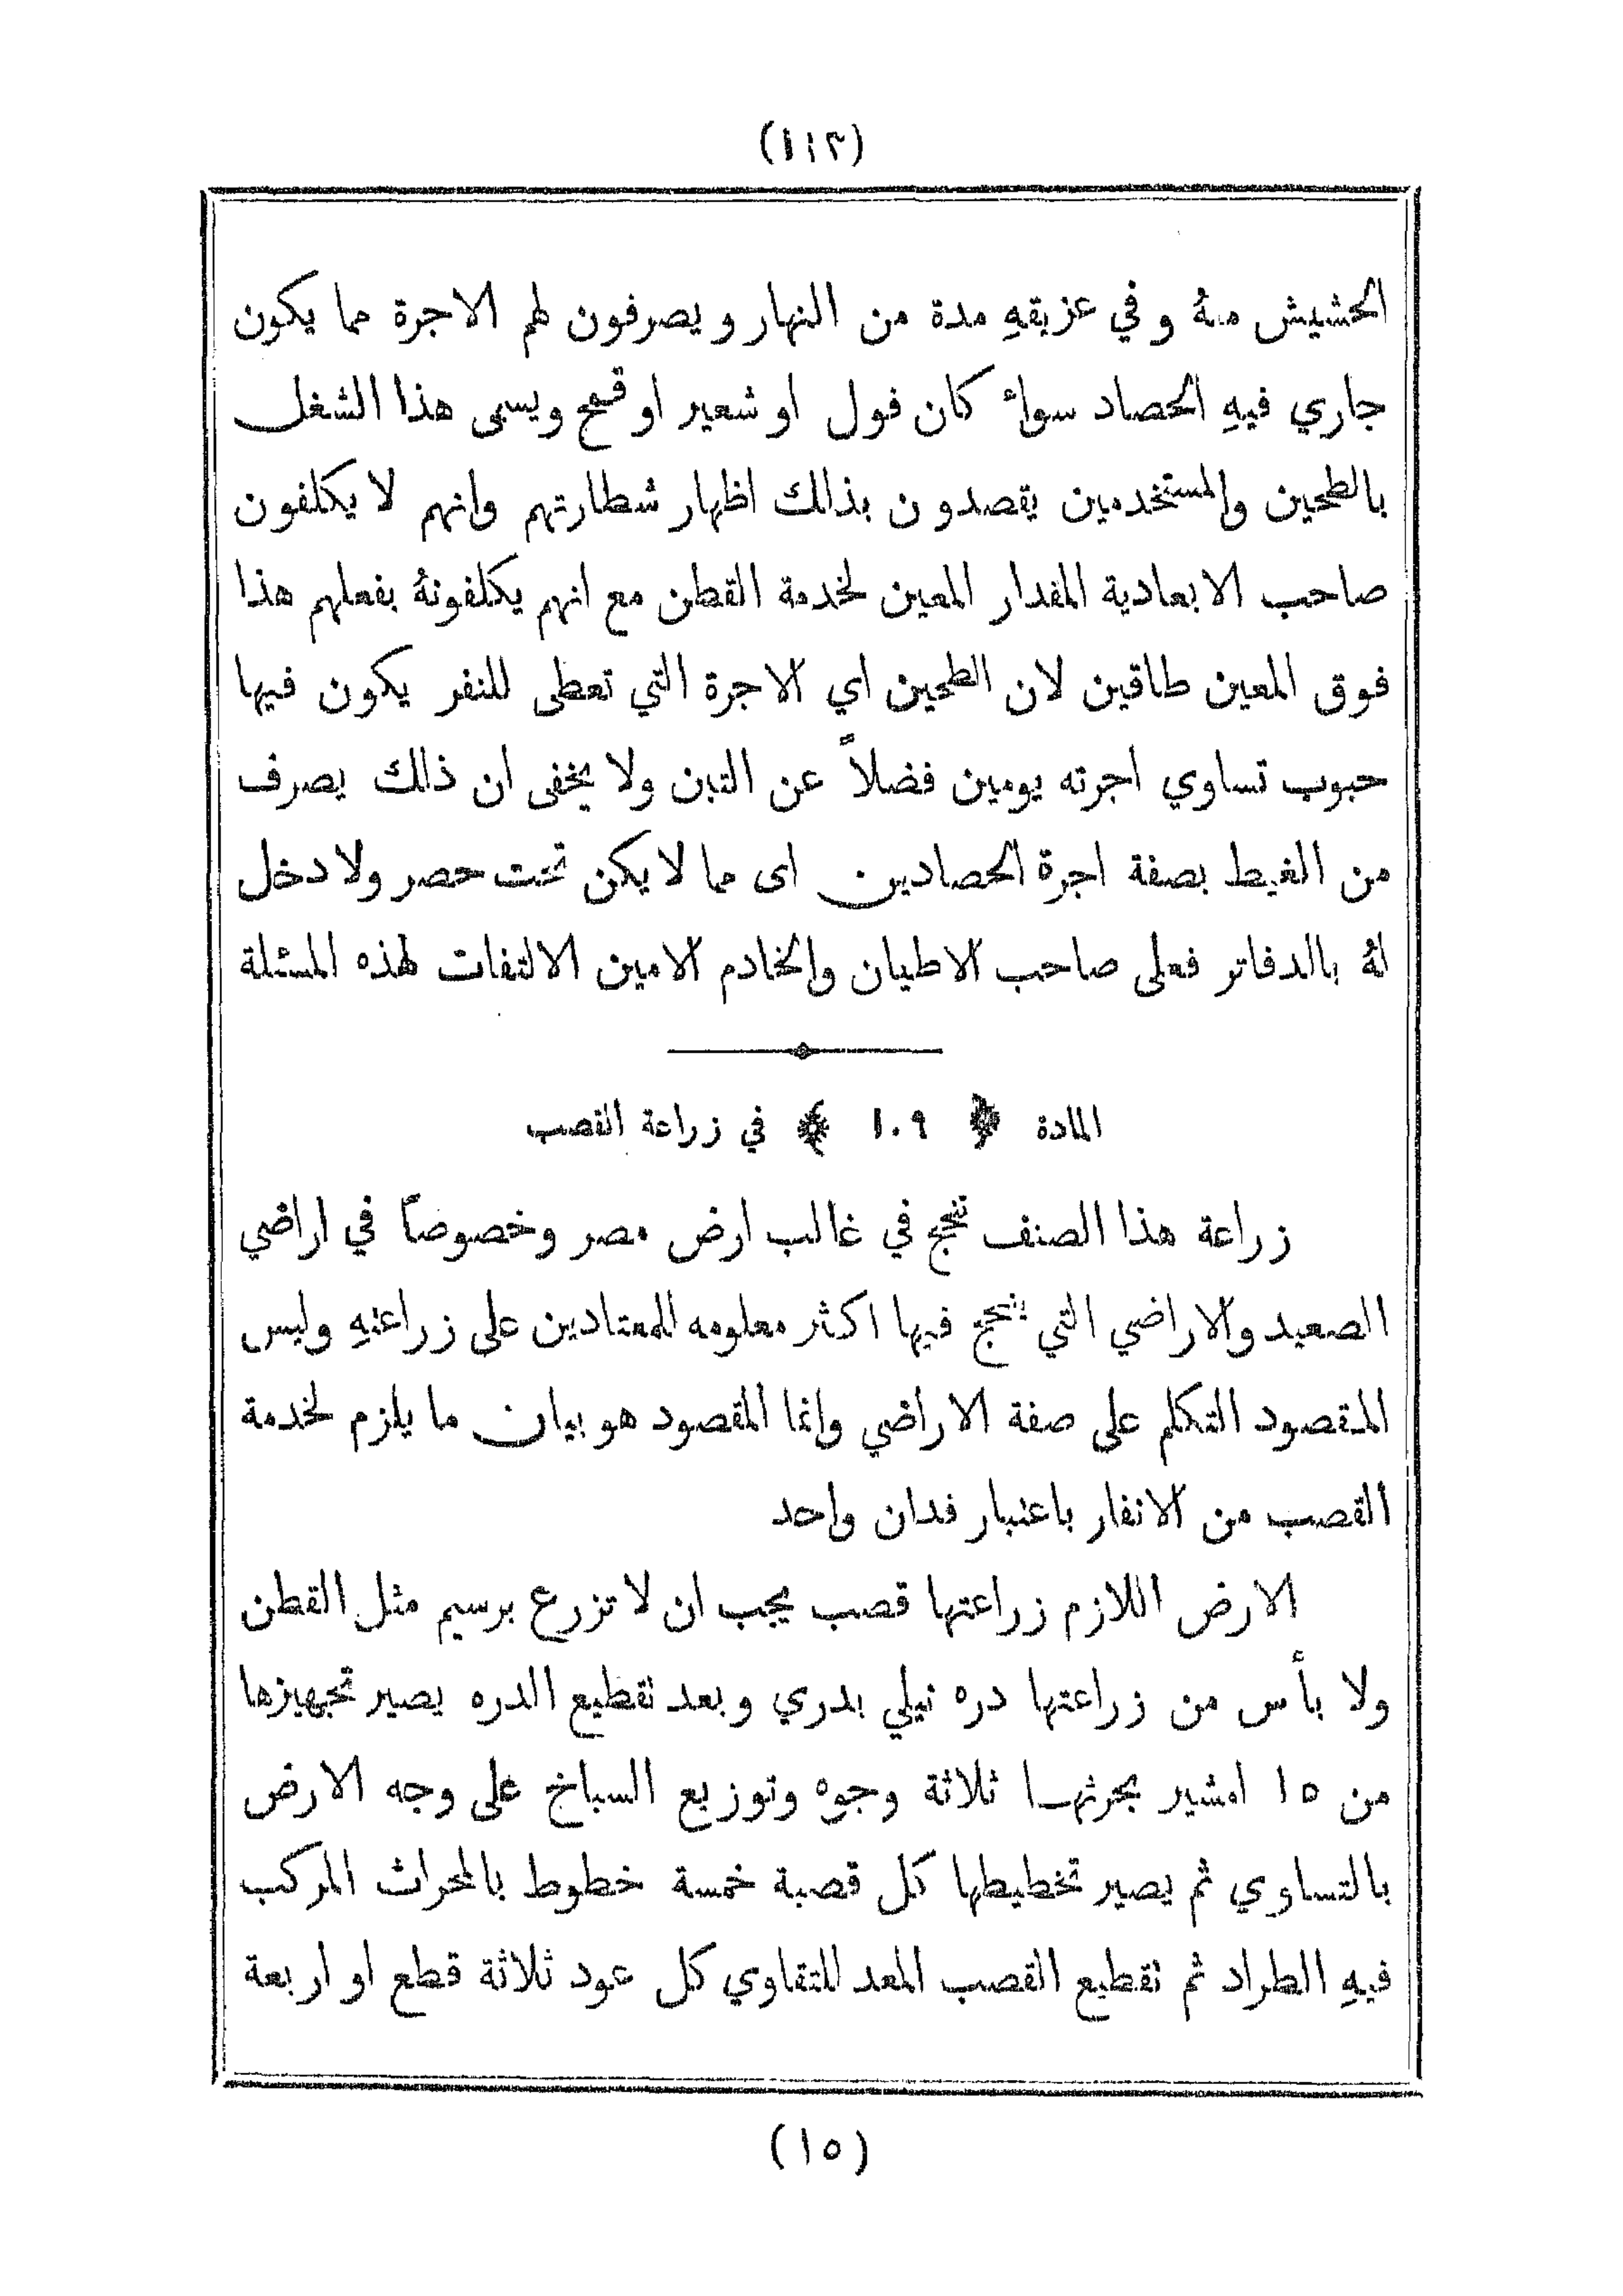 (١١٣)
الحشيش منهُ وفي عزيقهِ مدة من النهار ويصرفون لهم الاجرة مما يكون
جاري فيهِ الحصاد سواءً كان فول او شعير او قمح ويسمى هذا الشغل
بالطحين والمستخدمين يقصدون بذالك اظهار شطارتهم وانهم لا يكلفون
صاحب الابعادية المقدار المعين لخدمة القطن مع انهم يكلفونهُ بفعلهم هذا
فوق المعين طاقين لان الطحين اي الاجرة التي تعطى للنفر يكون فيها
حبوب تساوي اجرته يومين فضلاً عن التبن ولا يخفى ان ذالك يصرف
من الغيط بصفة اجرة الحصادين اى مما لا يكن تحت حصر ولا دخل
لهُ بالدفاتر فعلى صاحب الاطيان والخادم الامين الالتفات لهذه المسئلة
المادة ﴿ ١٠٩ ﴾ في زراعة القصب
زراعة هذا الصنف تنجح في غالب ارض مصر وخصوصاً في اراضي
الصعيد والاراضي التي ينجح فيها اكثر معلومه للمعتادين على زراعتهِ وليس
المقصود التكلم على صفة الاراضي وانما المقصود هو بيان ما يلزم لخدمة
القصب من الانفار باعتبار فدان واحد
الارض اللازم زراعتها قصب يجب ان لا تزرع برسيم مثل القطن
ولا بأس من زراعتها دره نيلي بدري وبعد تقطيع الدره يصير تجهيزها
من ١٥ امشير بحرثها ثلاثة وجوه وتوزيع السباخ على وجه الارض
بالتساوي ثم يصير تخطيطها كل قصبة خمسة خطوط بالمحراث المركب
فيهِ الطراد ثم تقطيع القصب المعد للتقاوي كل عود ثلاثة قطع او اربعة
(١٥)